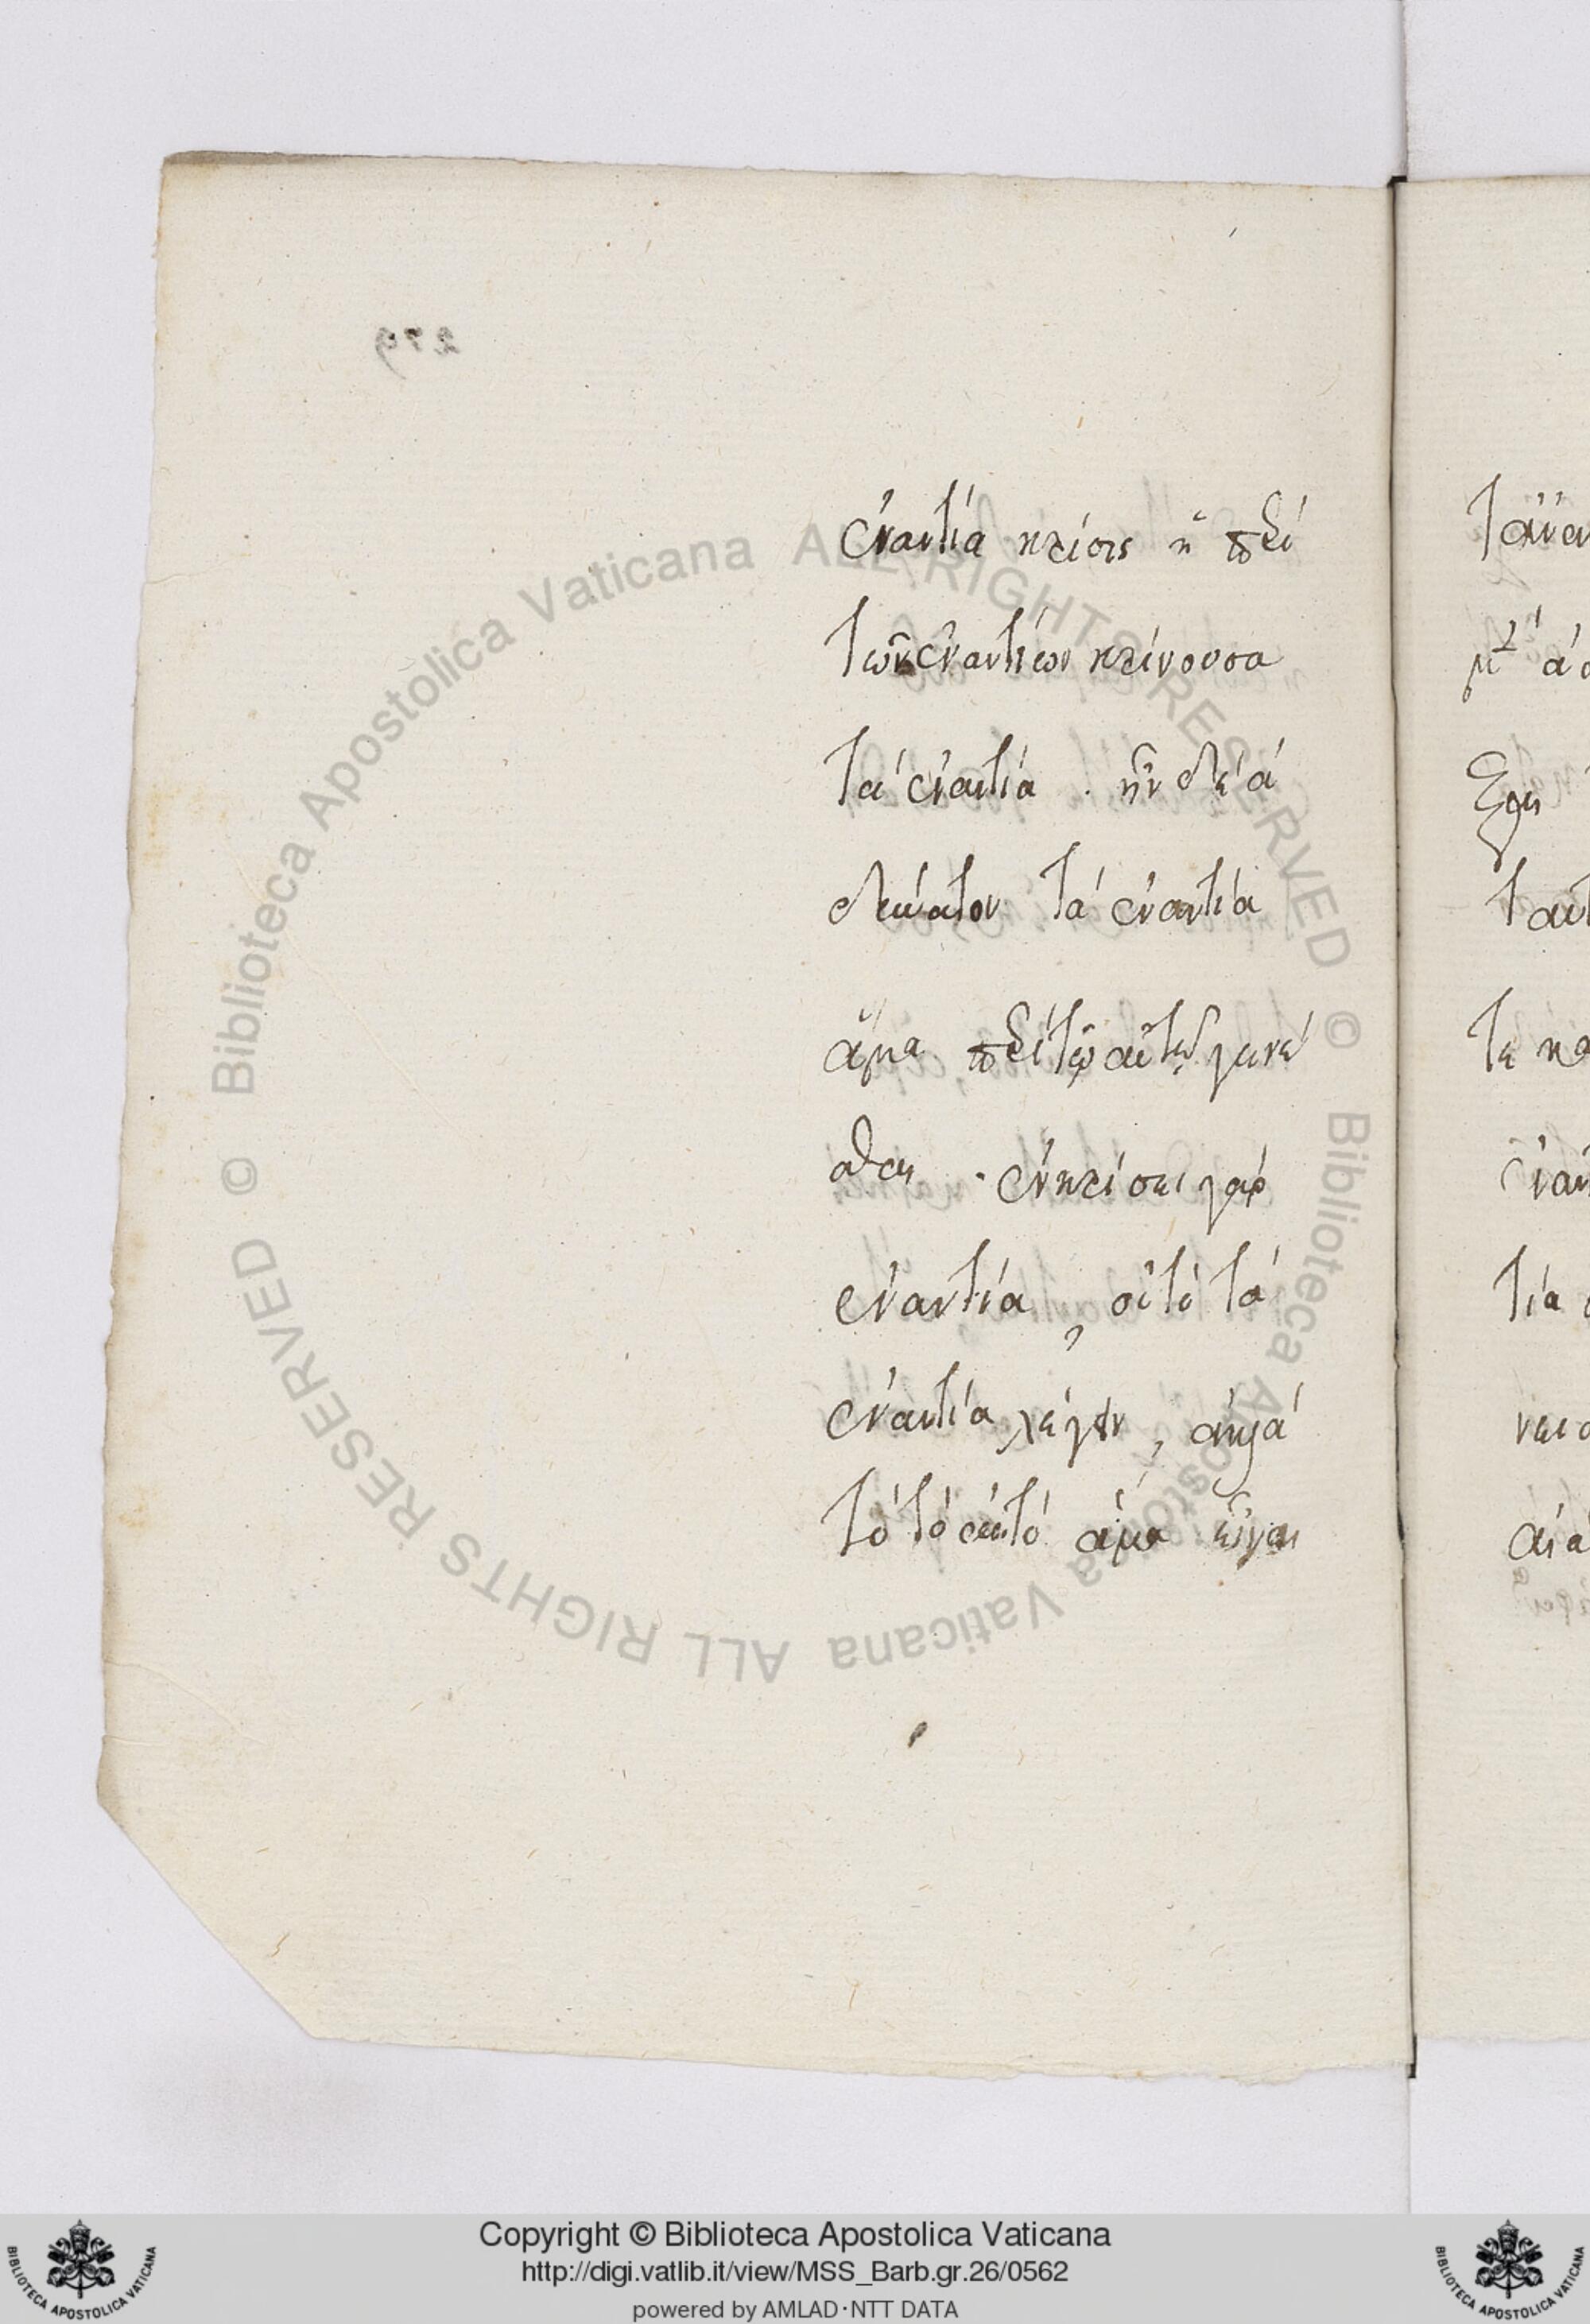 279
ἐναντία κρίσις ἡ περὶ
τῶν ἐναντίων κρίνουσα
τὰ ἐναντία . ἦν δὲ ἀ
δύνατον τὰ ἐναντία
ἅμα περὶ τῷ αὐτῷ γενέ
σθαι . ἐν κρίσει γὰρ
ἐναντία, οὐ τὸ τὰ
ἐναντία λέγειν, ἀλλὰ
τὸ τὸ αὐτὸ ἅμα εἶναι
© Biblioteca Apostolica Vaticana ALL RIGHTS RESERVED © Biblioteca Apostolica Vaticana ALL RIGHTS RESERVED
Copyright © Biblioteca Apostolica Vaticana
http://digi.vatlib.it/view/MSS_Barb.gr.26/0562
powered by AMLAD·NTT DATA
BIBLIOTECA APOSTOLICA VATICANA
BIBLIOTECA APOSTOLICA VATICANA